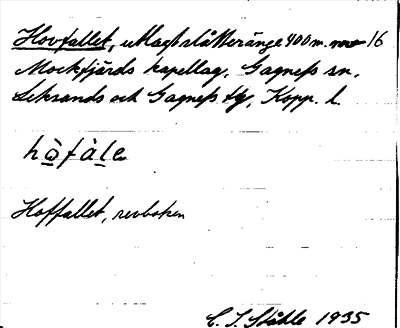 Hovfallet, utlagsslåtteräng 400 m. 16
Mockfjärds kapellag, Gagnefs sn,
Leksands och Gagnefs tg, Kopp. l.
hò̀fàle
Hoffallet, revboken
C. I. Ståhle 1935